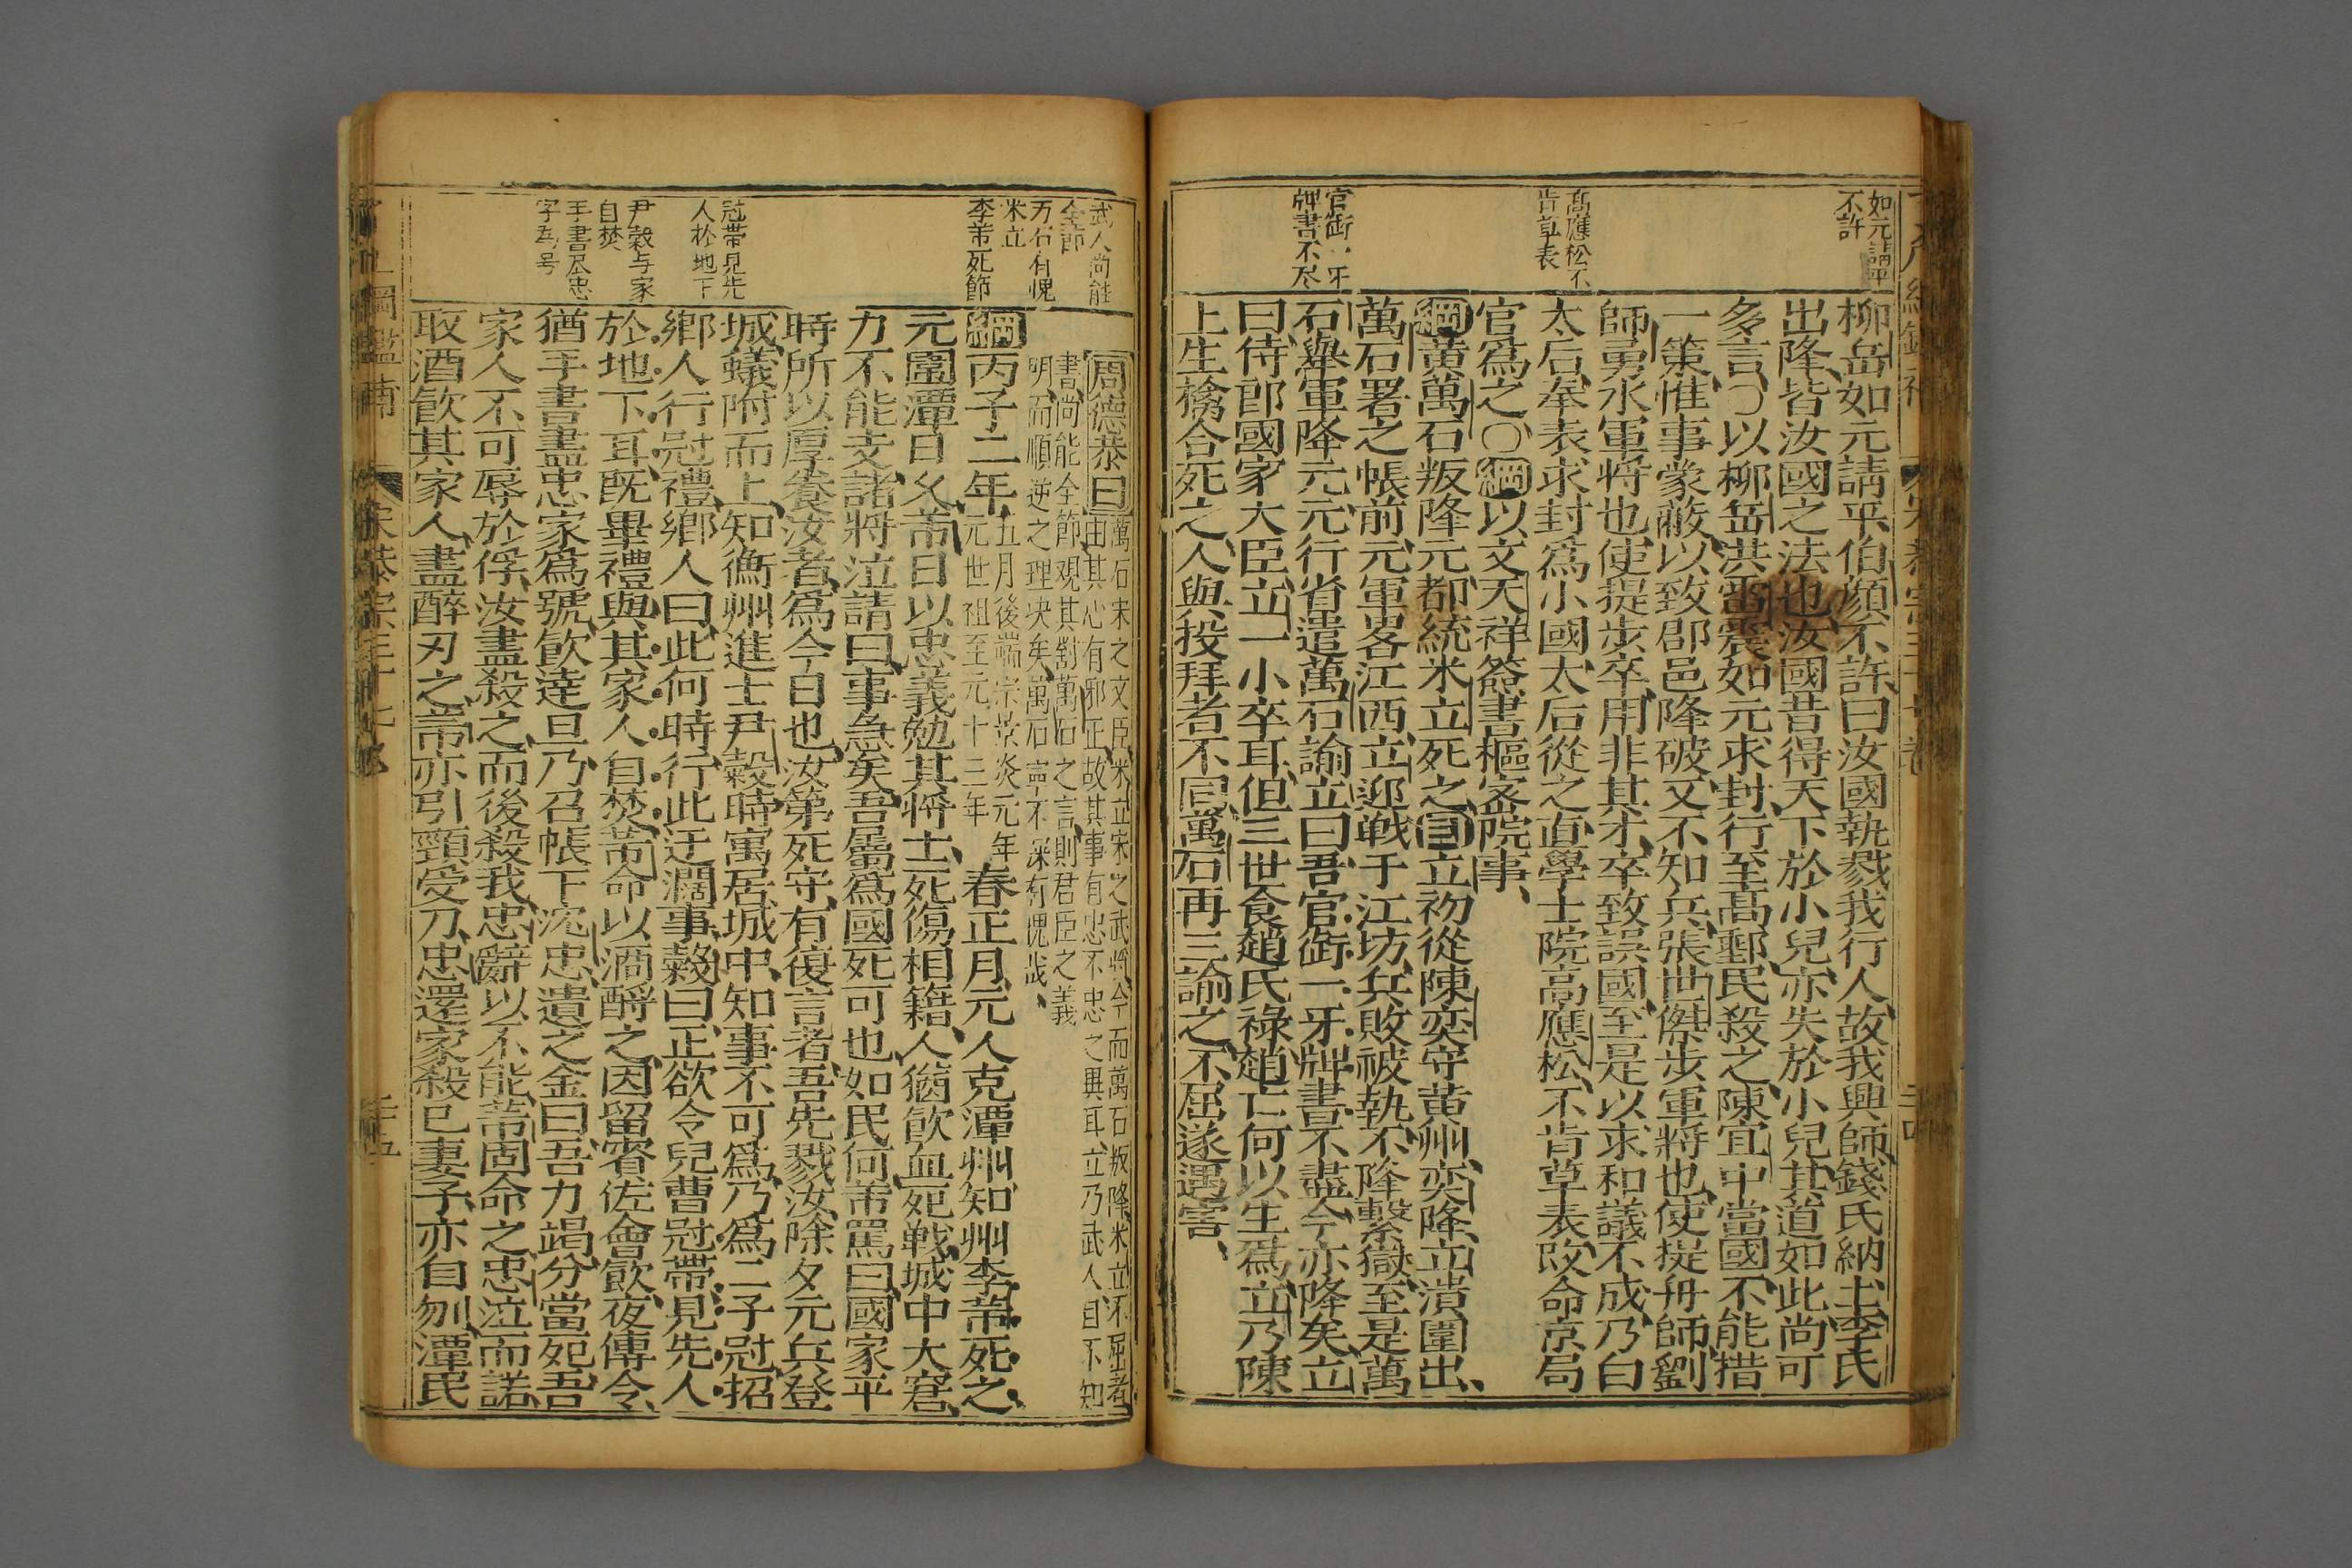 如元請平
不許
高應松不
肯草表
官銜一牙
牌書不尽
柳岳如元請平伯顏不許曰汝國執戮我行人故我興師錢氏納土李氏
出降皆汝國之法也汝國昔得天下於小兒亦失於小兒其道如此尚可
多言○以柳岳洪雷震如元求封行至高郵民殺之陳宜中當國不能措
一策惟事蒙蔽以致郡邑降破又不知兵張世傑步軍將也使提舟師劉
師勇水軍將也使提步卒用非其才卒致誤國至是以求和議不成乃白
太后奉表求封爲小國太后從之直學士院高應松不肯草表改命京局
官爲之○綱以文天祥簽書樞密院事
綱黃萬石叛降元都統米立死之目立初從陳奕守黃州奕降立潰圍出
萬石署之帳前元軍畧江西立迎戰于江坊兵敗被執不降繫獄至是萬
石舉軍降元元行省遣萬石諭立曰吾官銜一牙牌書不盡今亦降矣立
曰侍郎國家大臣立一小卒耳但三世食趙氏祿趙亡何以生爲立乃陳
上生擒合死之人與投拜者不同萬石再三諭之不屈遂遇害
宋恭宗三十七卷
三十四
武人尚能
全節
万石有愧
米立
李芾死節
冠帶見先
人於地下
尹穀与家
自焚
手書尽忠
字爲号
周德恭曰萬石宋之文臣米立宋之武將今而萬石叛降米立不屈者
由其心有邪正故其事有忠不忠之異耳立乃武人目不知
書尚能全節觀其對萬石之言則君臣之義
明而順逆之理決矣萬石寧不深有愧哉
綱丙子二年五月後端宗景炎元年
元世祖至元十三年春正月元人克潭州知州李芾死之
元圍潭日久芾日以忠義勉其將士死傷相籍人猶飲血死戰城中大窘
力不能支諸將泣請曰事急矣吾屬爲國死可也如民何芾罵曰國家平
時所以厚養汝者爲今日也汝第死守有復言者吾先戮汝除夕元兵登
城蟻附而上知衡州進士尹穀時寓居城中知事不可爲乃爲二子冠招
鄉人行冠禮鄉人曰此何時行此迂濶事穀曰正欲令兒曹冠帶見先人
於地下耳既畢禮與其家人自焚芾命以酒酹之因留賓佐會飲夜傳令
猶手書盡忠家爲號飲達旦乃召帳下沈忠遺之金曰吾力竭分當死吾
家人不可辱於俘汝盡殺之而後殺我忠辭以不能芾固命之忠泣而諾
取酒飲其家人盡醉刃之芾亦引頸受刀忠還家殺已妻子亦自刎潭民
宋恭宗三十七卷
三十五